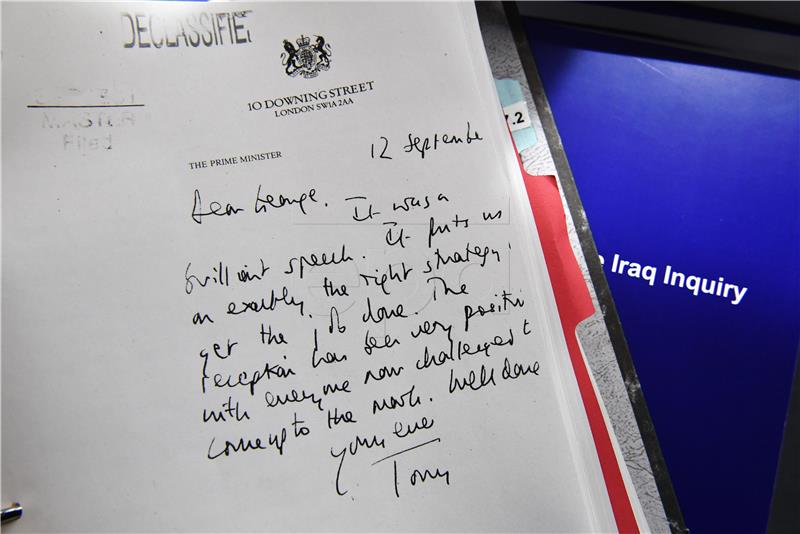 DECLASSIFIED
MASTER
Filed
10 DOWNING STREET
LONDON SW1A 2AA
THE PRIME MINISTER
12 September
Dear George. It was a
brilliant speech. It puts us
on exactly the right strategy to
get the job done. The
reception has been very positive
with everyone now challenged to
come up to the mark. Well done
Yours ever
Tony
7.2
e Iraq Inquiry
epa